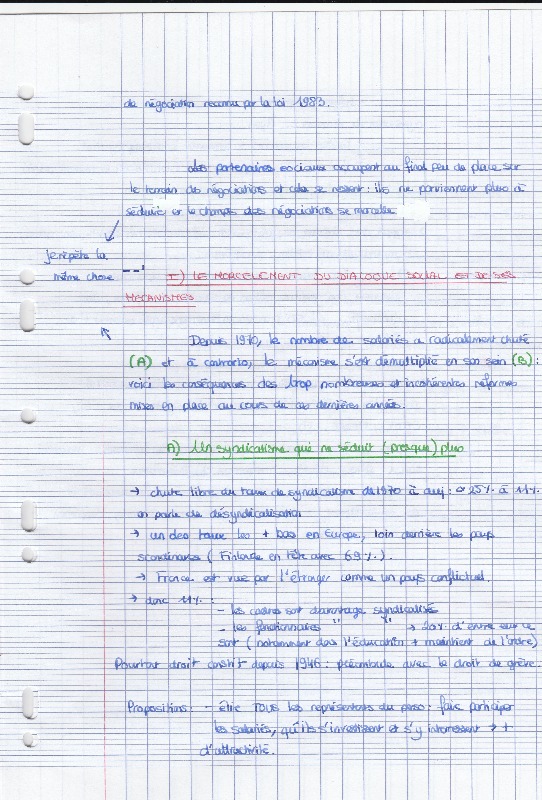 de négociation reconnu par la loi 1983.
Les partenaires sociaux occupent au final peu de place sur
le terrain des négociations et cela se ressent : ils ne parviennent plus à
séduire et le champs des négociations se morcelle
je répète la
même chose
I) LE MORCELEMENT DU DIALOGUE SOCIAL ET DE SES
MECANISMES
Depuis 1970, le nombre de salariés a radicalement chuté
(A) et à contrario, le mécanisme s'est démultiplié en son sein (B) :
voici les conséquences des trop nombreuses et incohérentes réformes
mises en place au cours de ces dernières années.
A) Un syndicalisme qui ne séduit (presque) plus
→ chute libre du taux de syndicalisme de 1970 à auj : 25% à 11%
on parle de désyndicalisation
→ un des taux les + bas en Europe, loin derrière les pays
scandinaves (Finlande en tête avec 69%).
→ France est vue par l'étranger comme un pays conflictuel.
→ donc 11% :
- les cadres sont davantage syndicalisés
- les fonctionnaires " " → 20% d'entre eux le
sont (notamment dans l'éducation + maintient de l'ordre)
Pourtant droit constit depuis 1946 : préambule avec le droit de grève.
Propositions : - élire TOUS les représentants du perso : faire participer
les salariés, qu'ils s'investissent et s'y interessent → +
d'attractivité.